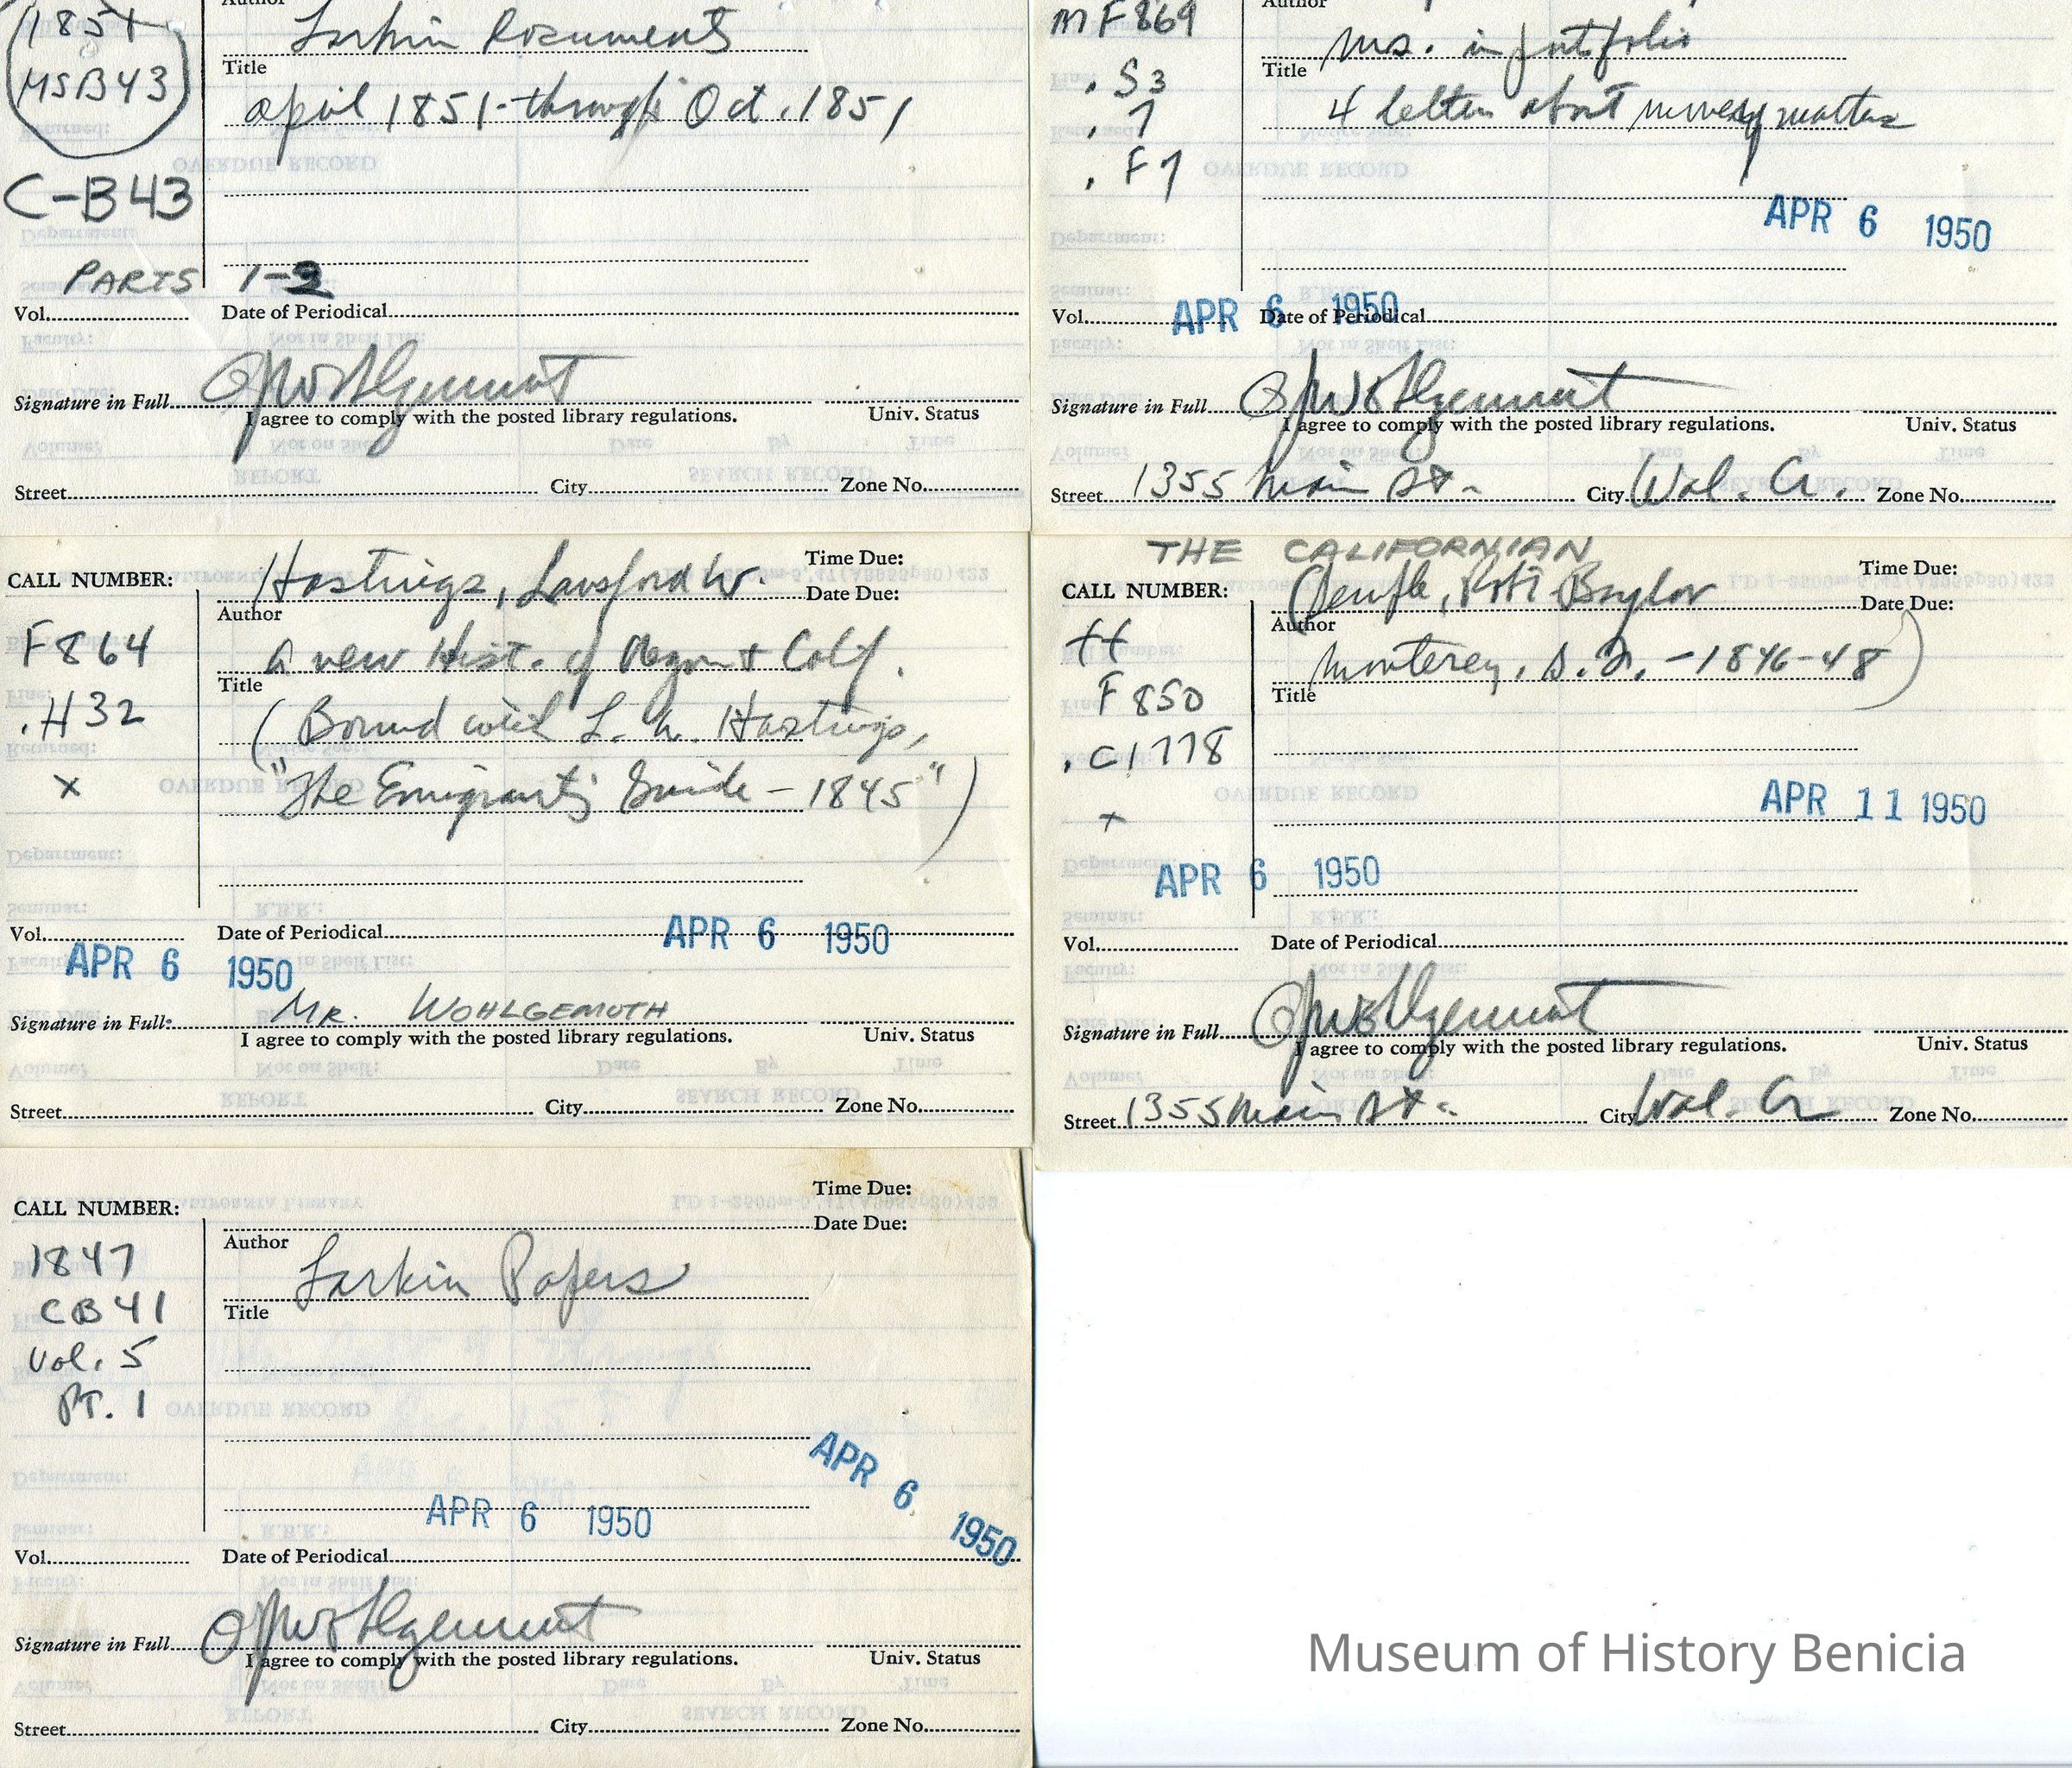 1851
MSB43
C-B43
Author
Larkin Documents
Title
April 1851 - through Oct. 1851
PARTS 1-2
Vol.
Date of Periodical
Signature in Full
I agree to comply with the posted library regulations.
Univ. Status
Street
City
Zone No.
MF869
.S3
.7
.F7
Author
Ms. in portfolio
Title
4 letters about matters
APR 6 1950
APR 6 1950
Vol.
Date of Periodical
Signature in Full
I agree to comply with the posted library regulations.
Univ. Status
Street 1355 Main St.
City Wal. Cr.
Zone No.
CALL NUMBER:
F864
.H32
x
Hastings, Lansford W.
Time Due:
Date Due:
Author
A new Hist. of Oregon & Calif.
Title
(Bound with L. W. Hastings,
"The Emigrants Guide - 1845")
Vol.
Date of Periodical
APR 6 1950
APR 6 1950
Signature in Full
MR. WOHLGEMUTH
I agree to comply with the posted library regulations.
Univ. Status
Street
City
Zone No.
THE CALIFORNIAN
CALL NUMBER:
ff
F850
.C1778
x
(Semple, Robt. Baylor
Time Due:
Date Due:
Author
Monterey, S.F. - 1846-48)
Title
APR 11 1950
APR 6 1950
Vol.
Date of Periodical
Signature in Full
I agree to comply with the posted library regulations.
Univ. Status
Street 1355 Main St.
City Wal. Cr
Zone No.
CALL NUMBER:
1847
CB41
Vol. 5
PT. 1
Time Due:
Date Due:
Author
Larkin Papers
Title
APR 6 1950
APR 6 1950
Vol.
Date of Periodical
Signature in Full
I agree to comply with the posted library regulations.
Univ. Status
Street
City
Zone No.
Museum of History Benicia